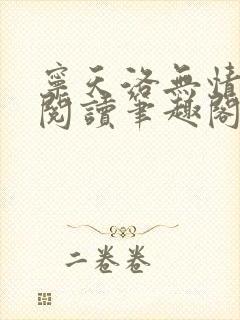 寧天洛無情
閱讀筆趣閣
二卷卷